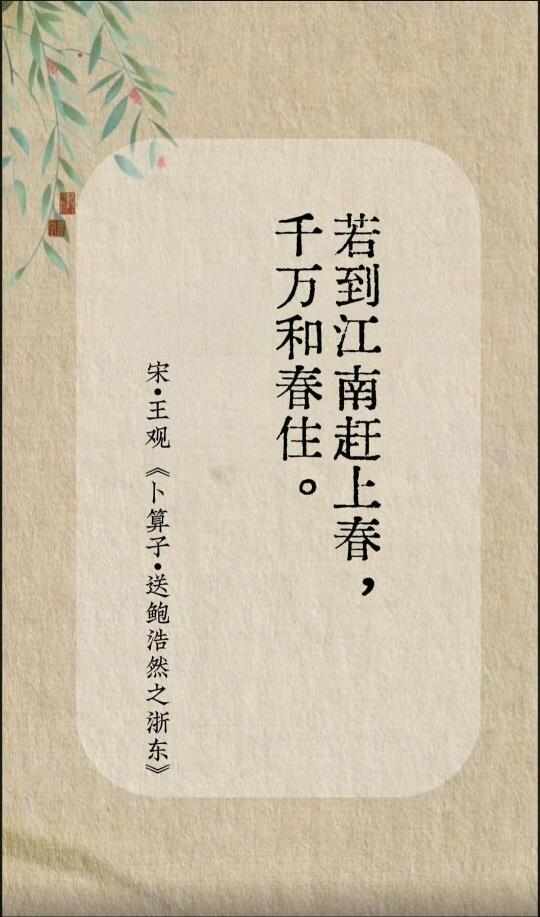 若到江南赶上春，
千万和春住。
宋·王观《卜算子·送鲍浩然之浙东》